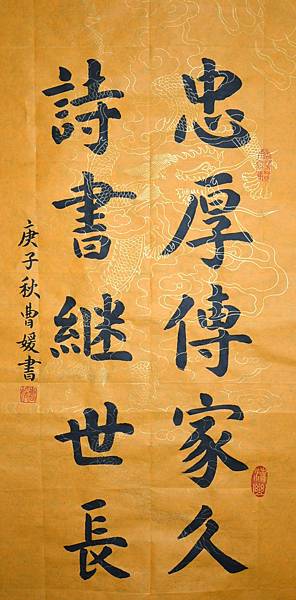 忠厚傳家久
詩書継世長
庚子秋曹媛書